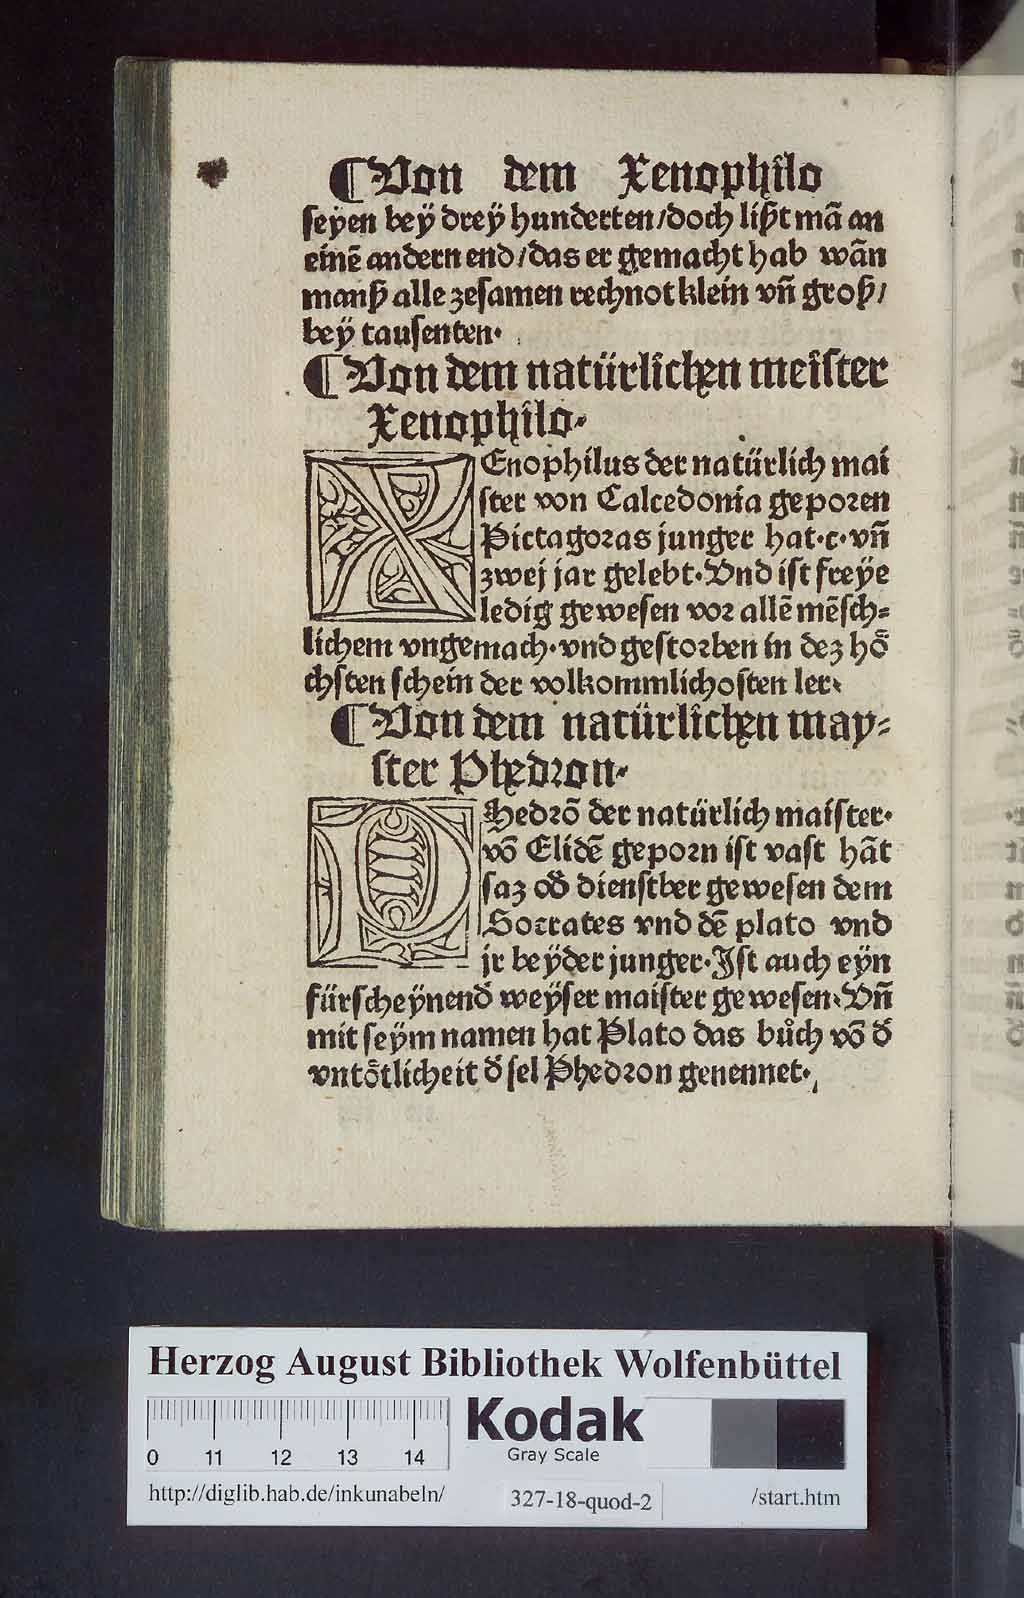 ¶Von dem Xenophilo
seyen beÿ dreÿ hunderten/doch lißt mā an
einē andern end/das er gemacht hab wān
manß alle zesamen rechnot klein vn̄ groß/
beÿ tausenten.
¶Von dem natürlichen meister
Xenophilo.
XEnophilus der natürlich mai
ster von Calcedonia geporen
Pictagoras junger hat.c.vn̄
zwej jar gelebt.Vnd ist freÿe
ledig gewesen vor allē mēsch⸗
lichem vngemach.vnd gestorben in dez hoͤ
chsten schein der volkommlichosten ler.
¶Von dem natürlichen may⸗
ster Phedron.
PHedrō der natürlich maister.
vō Elidē geporn ist vast hāt
saz od̛ dienstber gewesen dem
Socrates vnd dē plato vnd
jr beÿder junger.Jst auch eyn
fürscheÿnend̛ weÿser maister gewesen.Vn̄
mit seÿm namen hat Plato das bůch vō d̛
vntoͤtlicheit d̛ sel Phedron genennet.
Herzog August Bibliothek Wolfenbüttel
Kodak
Gray Scale
0 11 12 13 14
http://diglib.hab.de/inkunabeln/ 327-18-quod-2 /start.htm